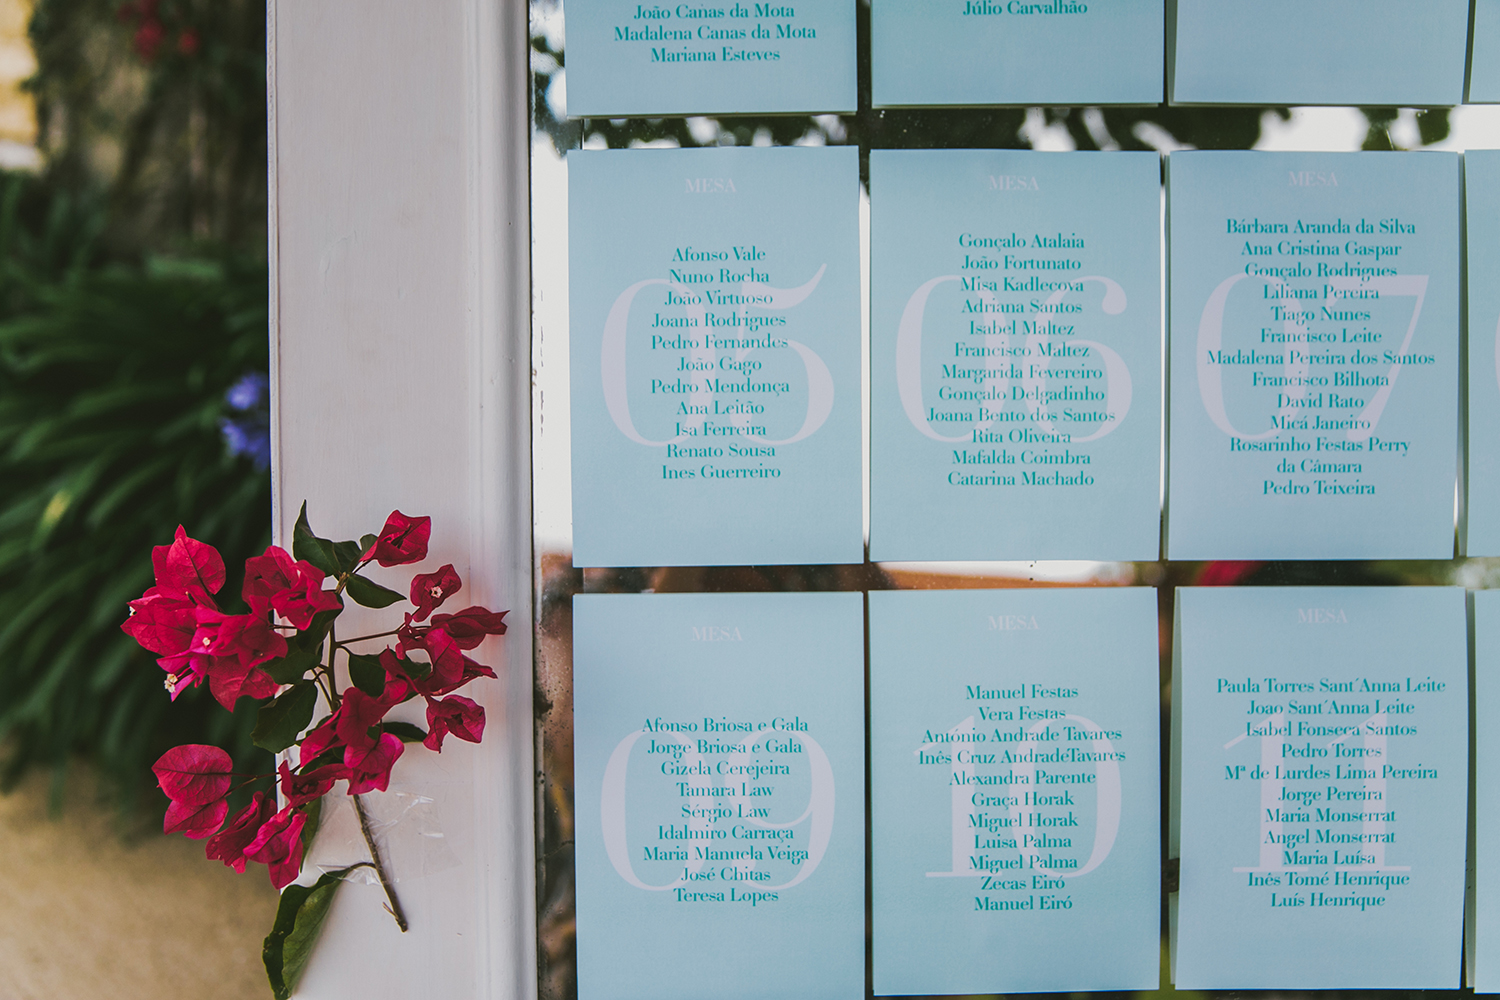 João Canas da Mota
Madalena Canas da Mota
Mariana Esteves
Júlio Carvalhão
MESA
05
Afonso Vale
Nuno Rocha
João Virtuoso
Joana Rodrigues
Pedro Fernandes
João Gago
Pedro Mendonça
Ana Leitão
Isa Ferreira
Renato Sousa
Ines Guerreiro
MESA
06
Gonçalo Atalaia
João Fortunato
Misa Kadlecova
Adriana Santos
Isabel Maltez
Francisco Maltez
Margarida Fevereiro
Gonçalo Delgadinho
Joana Bento dos Santos
Rita Oliveira
Mafalda Coimbra
Catarina Machado
MESA
07
Bárbara Aranda da Silva
Ana Cristina Gaspar
Gonçalo Rodrigues
Liliana Pereira
Tiago Nunes
Francisco Leite
Madalena Pereira dos Santos
Francisco Bilhota
David Rato
Micá Janeiro
Rosarinho Festas Perry
da Câmara
Pedro Teixeira
MESA
09
Afonso Briosa e Gala
Jorge Briosa e Gala
Gizela Cerejeira
Tamara Law
Sérgio Law
Idalmiro Carraça
Maria Manuela Veiga
José Chitas
Teresa Lopes
MESA
10
Manuel Festas
Vera Festas
António Andrade Tavares
Inês Cruz AndradeTavares
Alexandra Parente
Graça Horak
Miguel Horak
Luisa Palma
Miguel Palma
Zecas Eiró
Manuel Eiró
MESA
11
Paula Torres Sant´Anna Leite
Joao Sant´Anna Leite
Isabel Fonseca Santos
Pedro Torres
Mª de Lurdes Lima Pereira
Jorge Pereira
Maria Monserrat
Angel Monserrat
Maria Luísa
Inês Tomé Henrique
Luís Henrique